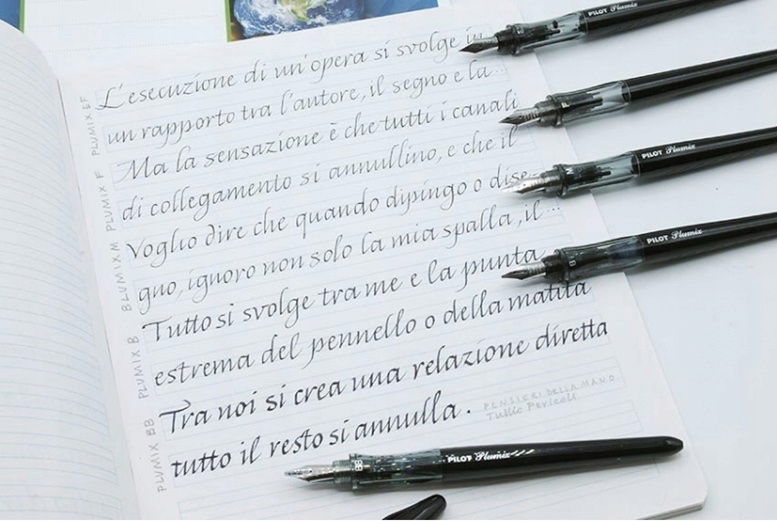 L'esecuzione di un'opera si svolge in
un rapporto tra l'autore, il segno e la...
Ma la sensazione è che tutti i canali
di collegamento si annullino, e che il
Voglio dire che quando dipingo o dise-
gno, ignoro non solo la mia spalla, il...
Tutto si svolge tra me e la punta
estrema del pennello o della matita
Tra noi si crea una relazione diretta
tutto il resto si annulla.
PENSIERI DELLA MANO
Tullio Pericoli
PLUMIX EF
PLUMIX F
PLUMIX M
PLUMIX B
PLUMIX BB
PILOT Plumix
PILOT Plumix
PILOT Plumix
PILOT Plumix
BB